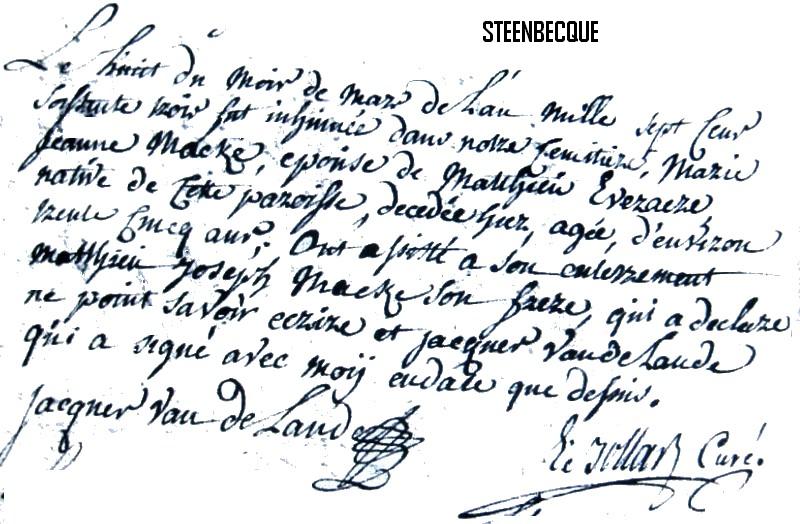 STEENBECQUE
Le huict du mois de mars de L'an mille sept Cens
soissente trois fut inhumée dans notre Cemitière, Marie
Jeanne Macke, eponse de Matthieu Everaere
native de Cette paroisse, decedée hier, agée, d'environ
trente Cincq ans; Ont assisté a son enterrement
matthieu Joseph Macke son frere, qui a declare
ne point savoir ecrire et jacques Vandelande
qui a signé avec moij endate que dessus.
jacques Van de Land
Curé.